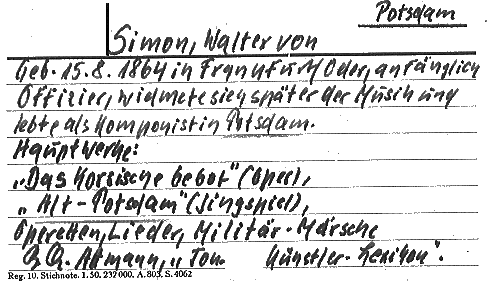 Potsdam
Simon, Walter von
Geb. 15.8.1864 in Frankfurt/Oder, anfänglich
Offizier, widmete sich später der Musik und
lebte als Komponist in Potsdam.
Hauptwerke:
„Das korsische Gebot" (Oper),
„Alt-Potsdam" (Singspiel),
Operetten, Lieder, Militär-Märsche
Altmann, „Ton Künstler-Lexikon".
Reg. 10. Stichnote. 1. 50. 232 000. A. 803. S. 4062